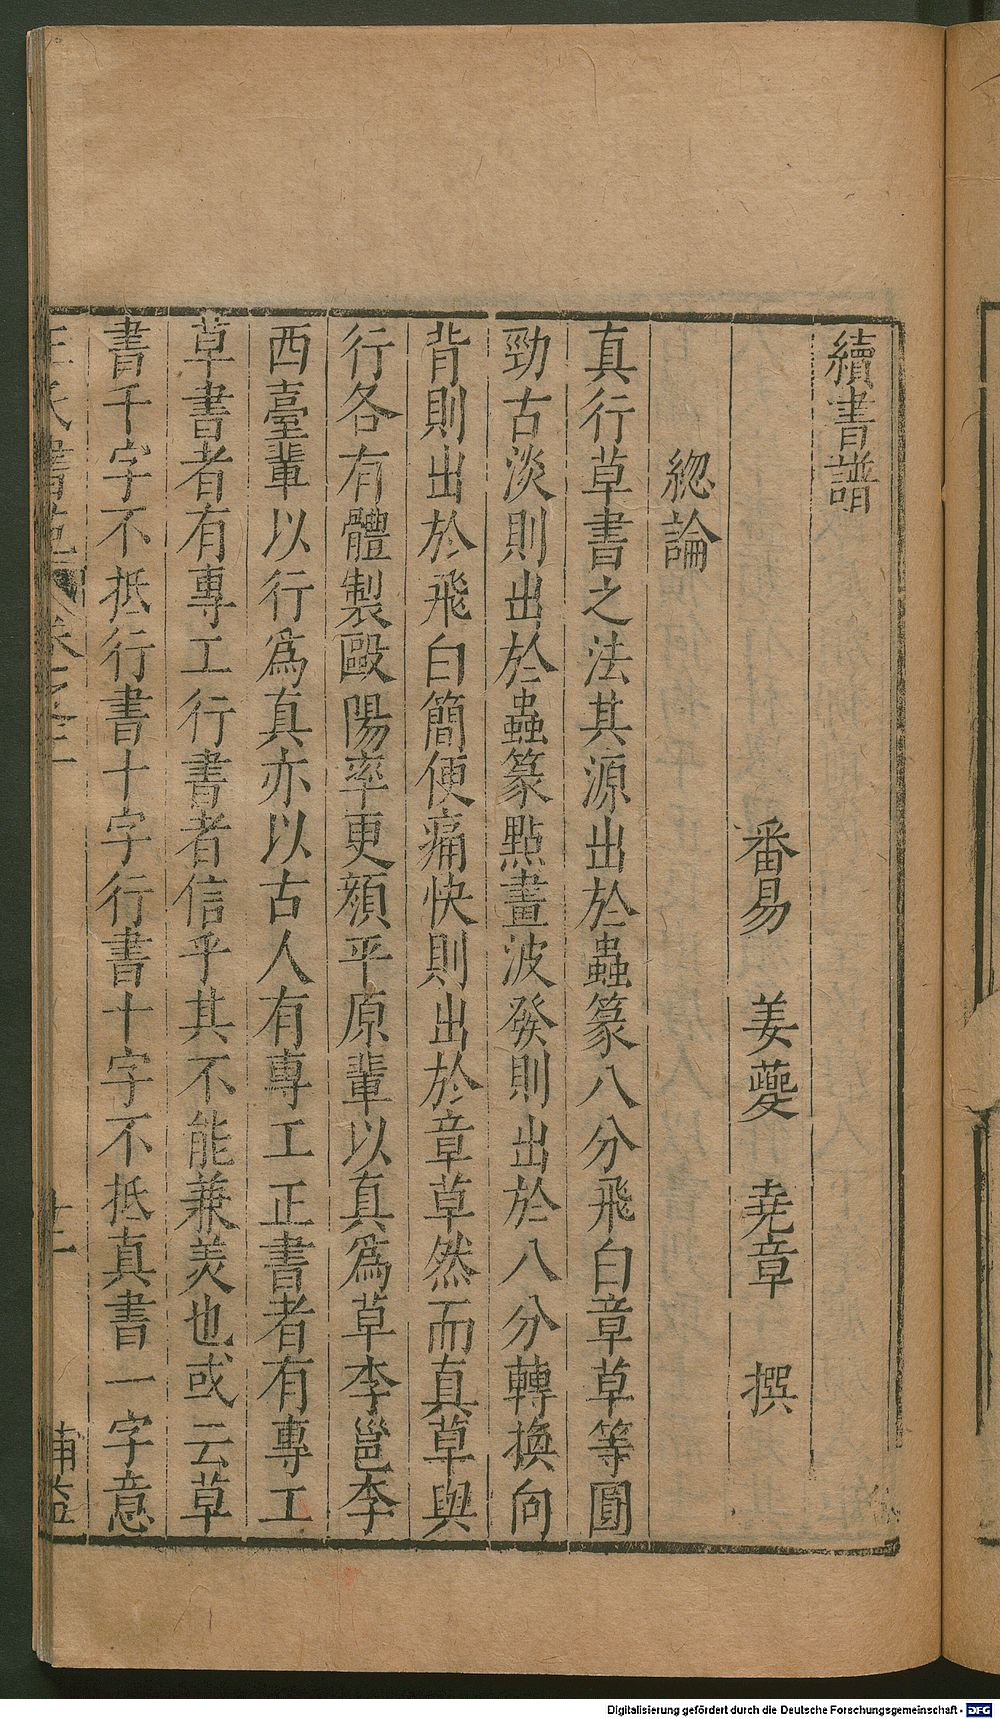 續書譜
番易 姜夔 堯章 撰
緫論
真行草書之法其源出於蟲篆八分飛白章草等圓
勁古淡則出於蟲篆點畫波發則出於八分轉換向
背則出於飛白簡便痛快則出於章草然而真草與
行各有體製歐陽率更顔平原輩以真爲草李邕李
西臺輩以行爲真亦以古人有專工正書者有專工
草書者有專工行書者信乎其不能兼美也或云草
書千字不抵行書十字行書十字不抵真書一字意
王氏書苑 卷之二
Digitalisierung gefördert durch die Deutsche Forschungsgemeinschaft - DFG